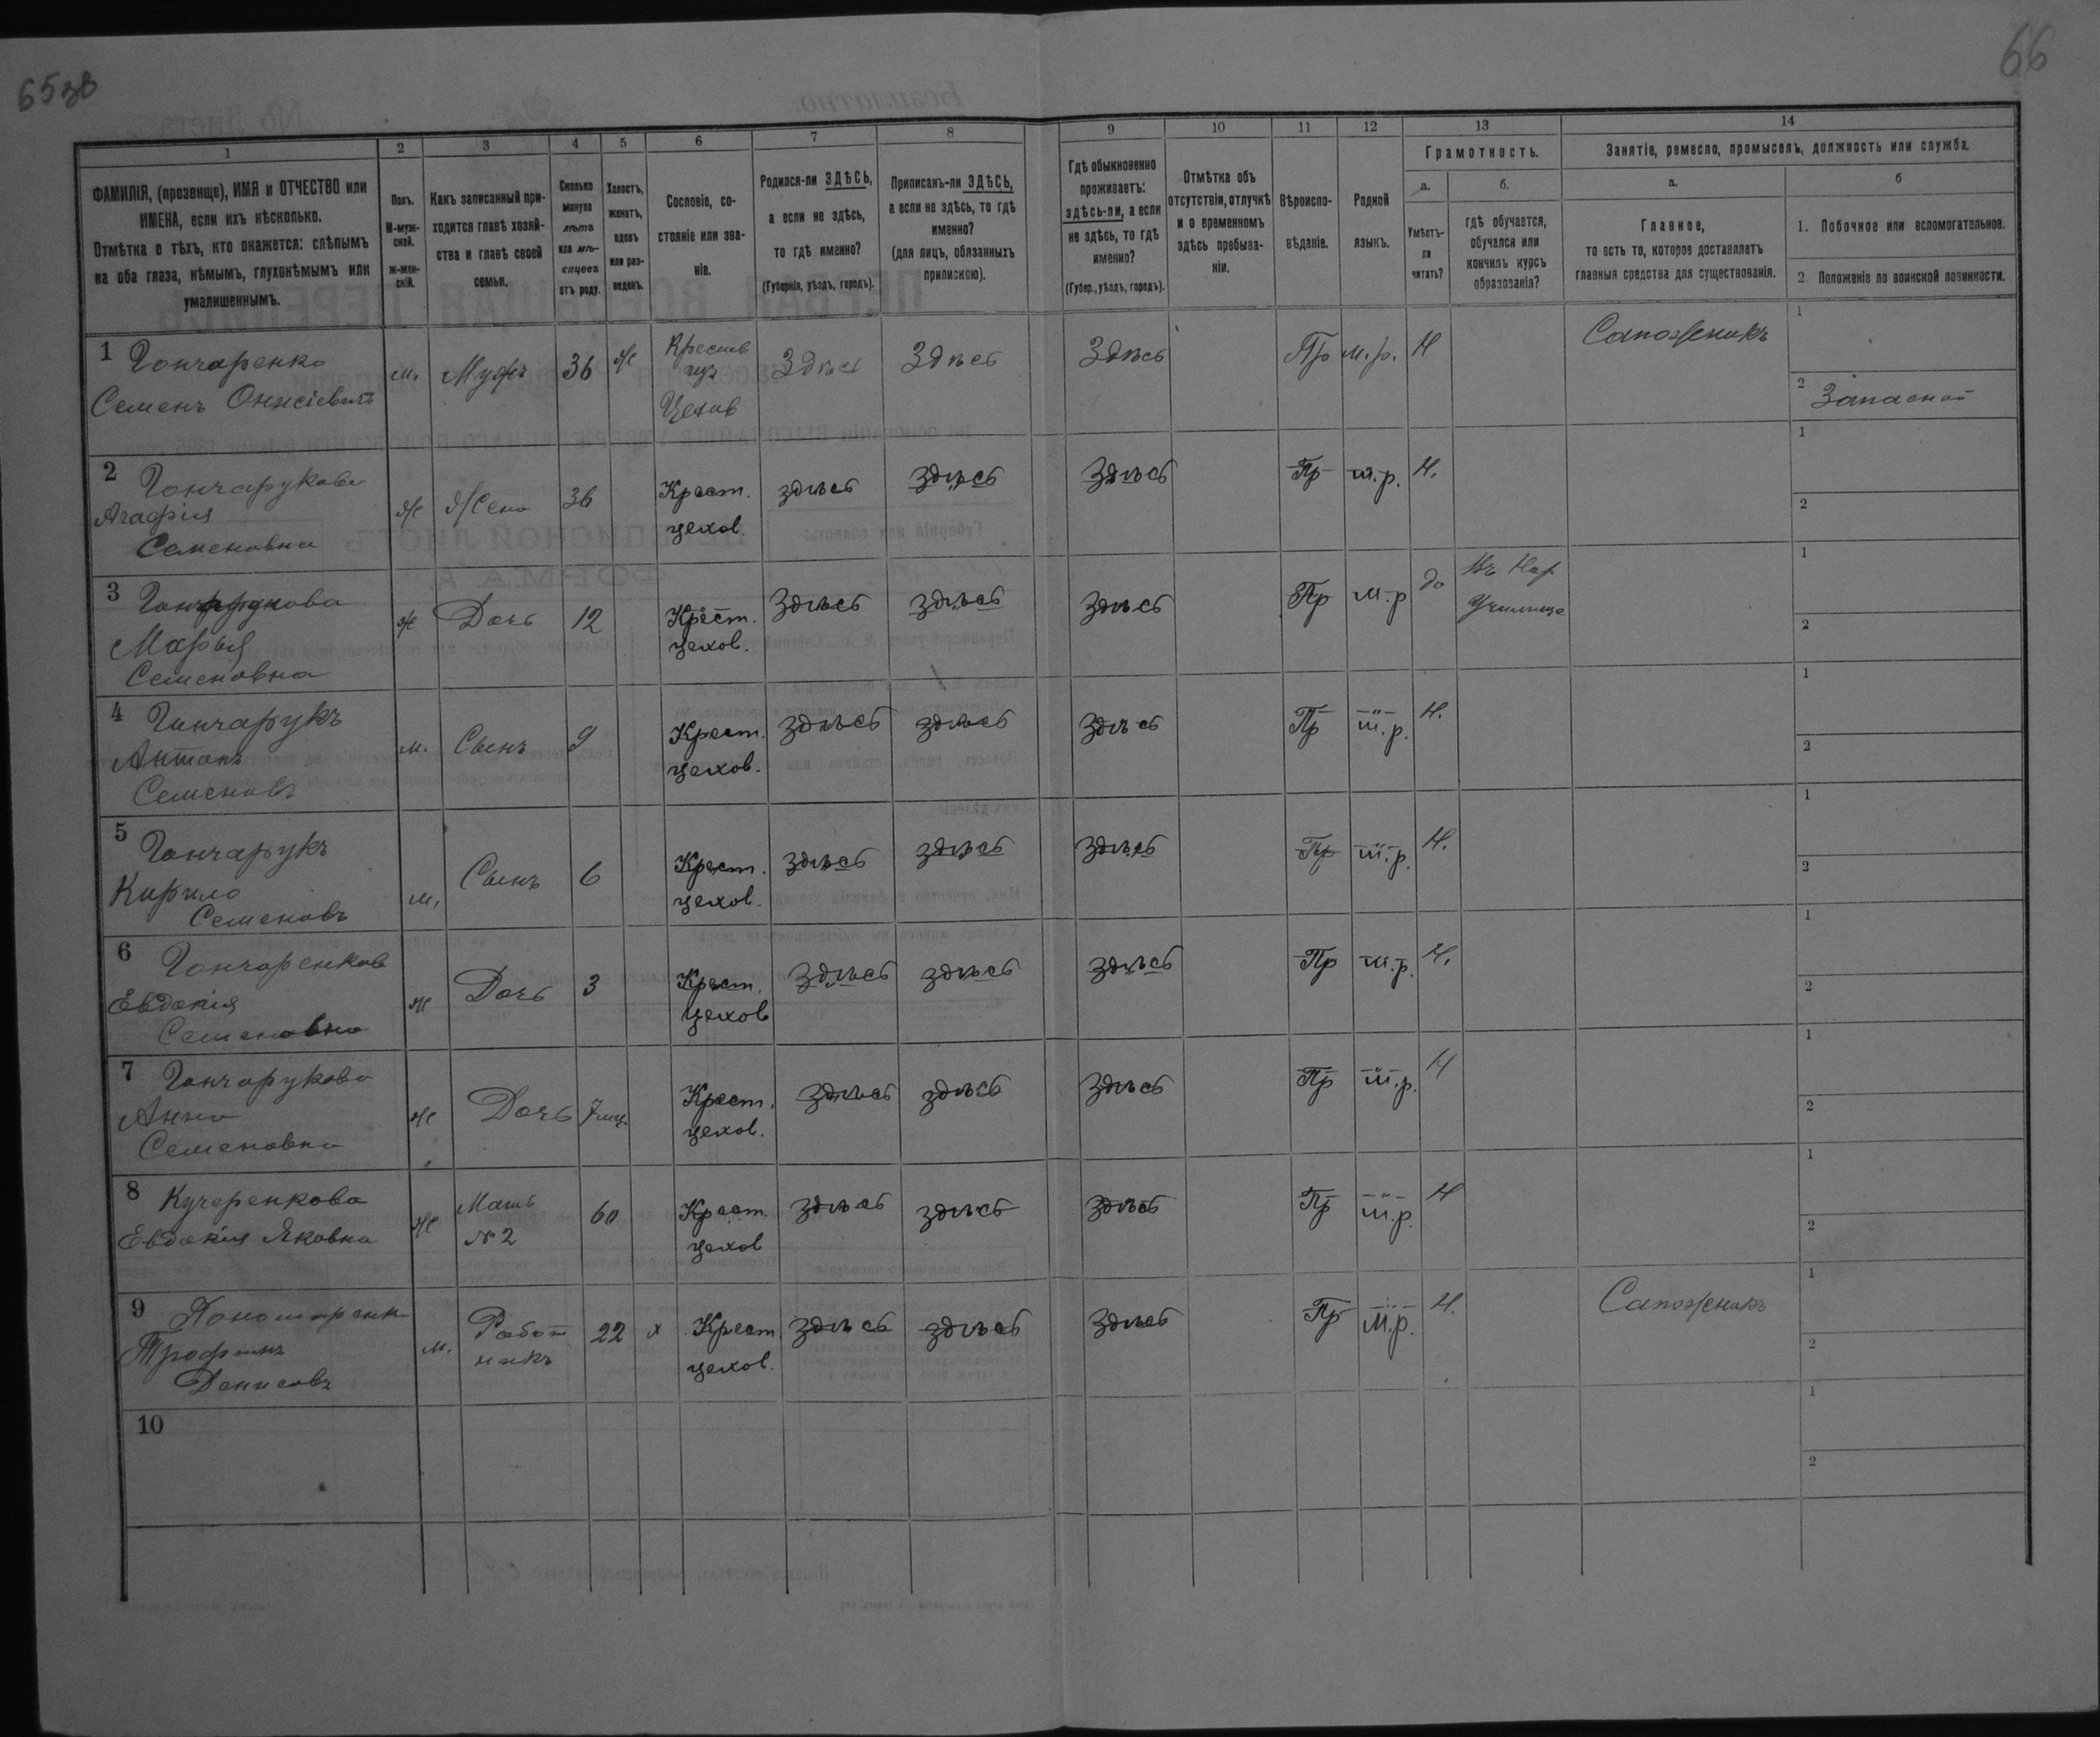 65зв
66
1 2 3 4 5 6 7 8 9 10 11 12 13 14
ФАМИЛІЯ, (прозвище), ИМЯ и ОТЧЕСТВО или
ИМЕНА, если ихъ нѣсколько.
Отмѣтка о тѣхъ, кто окажется: слѣпымъ
на оба глаза, нѣмымъ, глухонѣмымъ или
умалишеннымъ.
Полъ.
М-муж-
ской.
ж-жен-
скій.
Какъ записанный при-
ходится главѣ хозяй-
ства и главѣ своей
семьи.
Сколько
минуло
лѣтъ
или мѣ-
сяцевъ
отъ роду.
Холостъ,
женатъ,
вдовъ
или раз-
веденъ.
Сословіе, со-
стояніе или зва-
ніе.
Родился-ли ЗДѢСЬ,
а если не здѣсь,
то гдѣ именно?
(Губернія, уѣздъ, городъ).
Приписанъ-ли ЗДѢСЬ,
а если не здѣсь, то гдѣ
именно?
(для лицъ, обязанныхъ
припискою).
Гдѣ обыкновенно
проживаетъ:
здѣсь-ли, а если
не здѣсь, то гдѣ
именно?
(Губер., уѣздъ, городъ).
Отмѣтка объ
отсутствіи, отлучкѣ
и о временномъ
здѣсь пребыва-
ніи.
Вѣроиспо-
вѣданіе.
Родной
языкъ.
Грамотность.
а.
Умѣетъ-
ли
читать?
б.
гдѣ обучается,
обучался или
кончилъ курсъ
образованія?
Занятіе, ремесло, промыселъ, должность или служба.
а.
Главное,
то есть то, которое доставляетъ
главныя средства для существованія.
б
1. Побочное или вспомогательное.
2 Положеніе по воинской повинности.
1 Гончаренко
Семенъ Онисіевичъ
м. Мужъ 36 ж
Крестья
Цехов
Здѣсь Здѣсь Здѣсь Пр м.р. Н Сапожникъ
1
2 Запасной
2 Гончарукова
Агафія
Семеновна
ж Жена 36 Крест.
цехов.
здѣсь здѣсь здѣсь Пр м.р. Н.
1
2
3 Гончарукова
Марья
Семеновна
ж Дочь 12 Крест.
цехов.
здѣсь здѣсь здѣсь Пр м.р да Въ Нар
Училище
1
2
4 Гончарукъ
Антонъ
Семеновъ
м. Сынъ 9 Крест.
цехов.
здѣсь здѣсь здѣсь Пр м.р. Н.
1
2
5 Гончарукъ
Кирило
Семеновъ
м. Сынъ 6 Крест.
цехов.
здѣсь здѣсь здѣсь Пр м.р. Н.
1
2
6 Гончаренков
Евдокія
Семеновна
ж Дочь 3 Крест.
цехов
здѣсь здѣсь здѣсь Пр м.р. Н.
1
2
7 Гончарукова
Анна
Семеновна
ж Дочь 7 мц. Крест.
цехов.
здѣсь здѣсь здѣсь Пр м.р. Н
1
2
8 Кучеренкова
Евдокия Яковна
ж Мать
№ 2
60 Крест.
цехов
здѣсь здѣсь здѣсь Пр м.р. Н
1
2
9 Пономаренк
Трофимъ
Денисовъ
м. Работ
никъ
22 х Крест
цехов.
здѣсь здѣсь здѣсь Пр м.р. Н. Сапожникъ
1
2
10
1
2